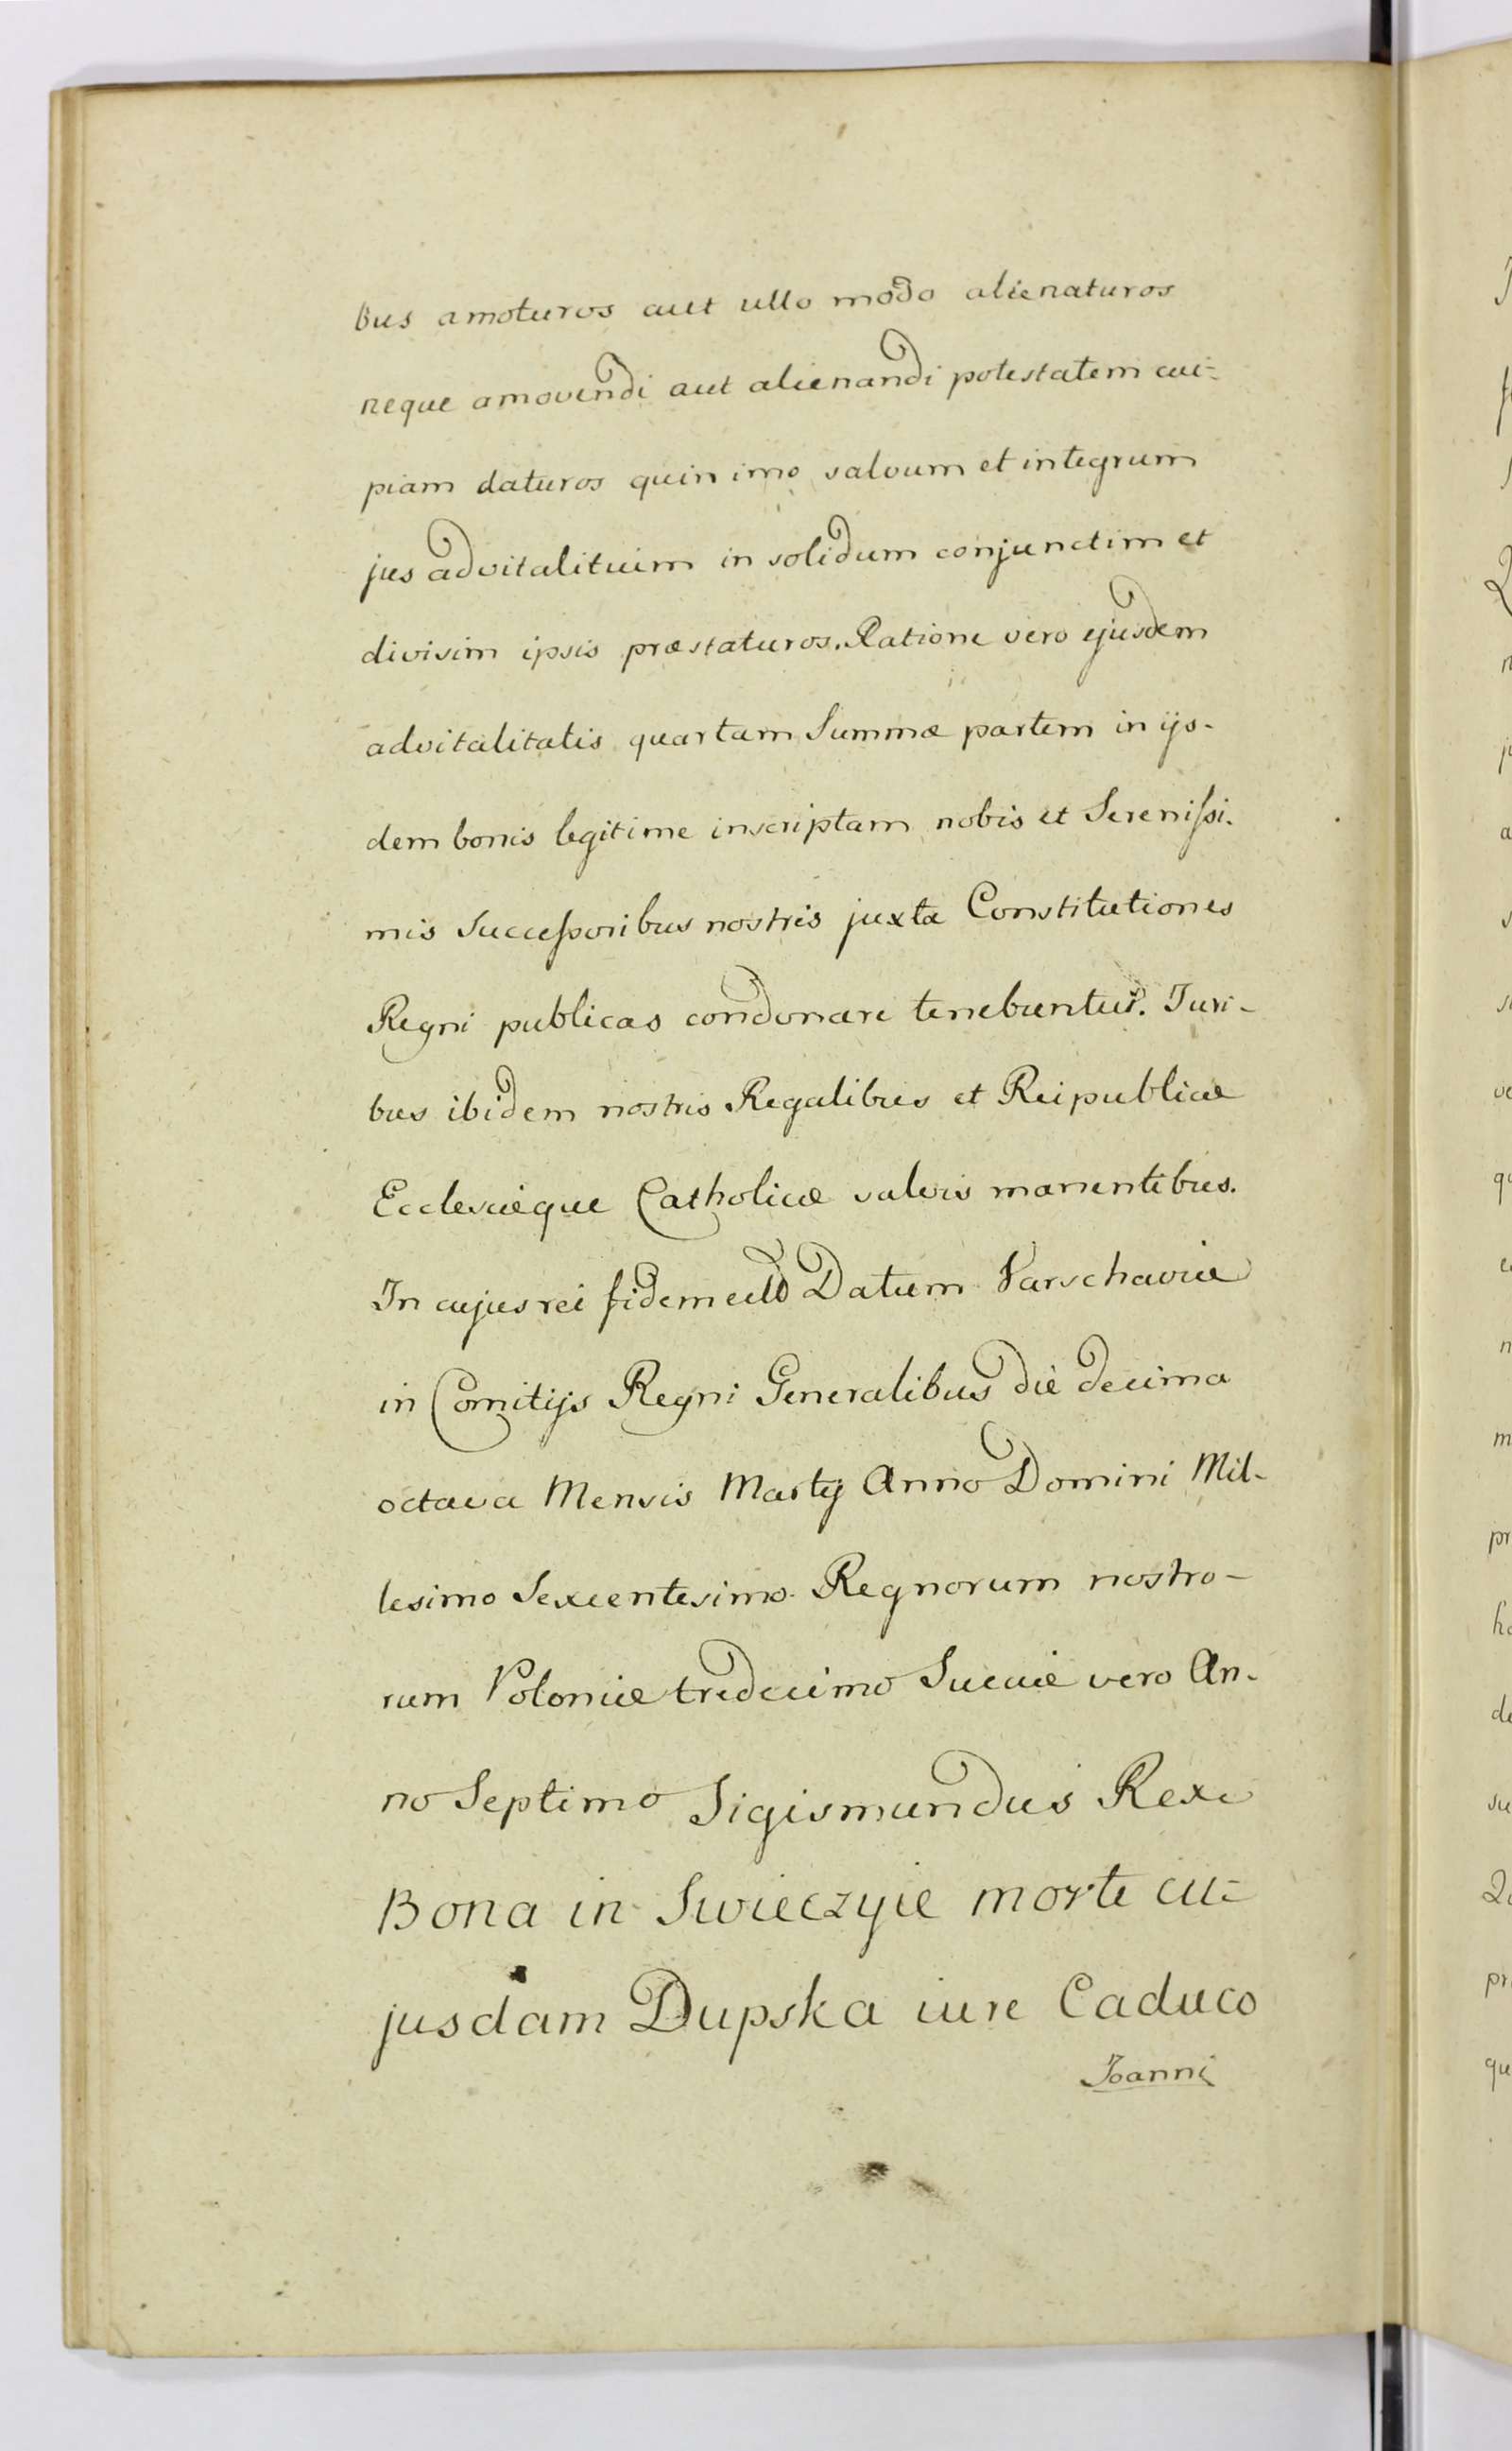 bus amoturos aut ullo modo alienaturos
neque amovendi aut alienandi potestatem cui-
piam daturos quin imo salvum et integrum
jus advitalituim in solidum conjunctim et
divisim ipsis præstaturos. Ratione vero ejusdem
advitalitatis quartam Summæ partem in ijs-
dem bonis legitime inscriptam nobis et Serenissi-
mis Successoribus nostris juxta Constitutiones
Regni publicas condonare tenebuntur. Juri-
bus ibidem nostris Regalibus et Reipublicæ
Ecclesiæque Catholicæ salvis manentibus.
In cujus rei fidem Datum Varschaviæ
in Comitijs Regni Generalibus die decima
octava Mensis Martij Anno Domini Mil-
lesimo Sexcentesimo. Regnorum nostro-
rum Poloniæ tredecimo Sueciæ vero An-
no Septimo Sigismundus Rex
Bona in Swieczyie morte cu-
jusdam Dupska iure Caduco
Joanni